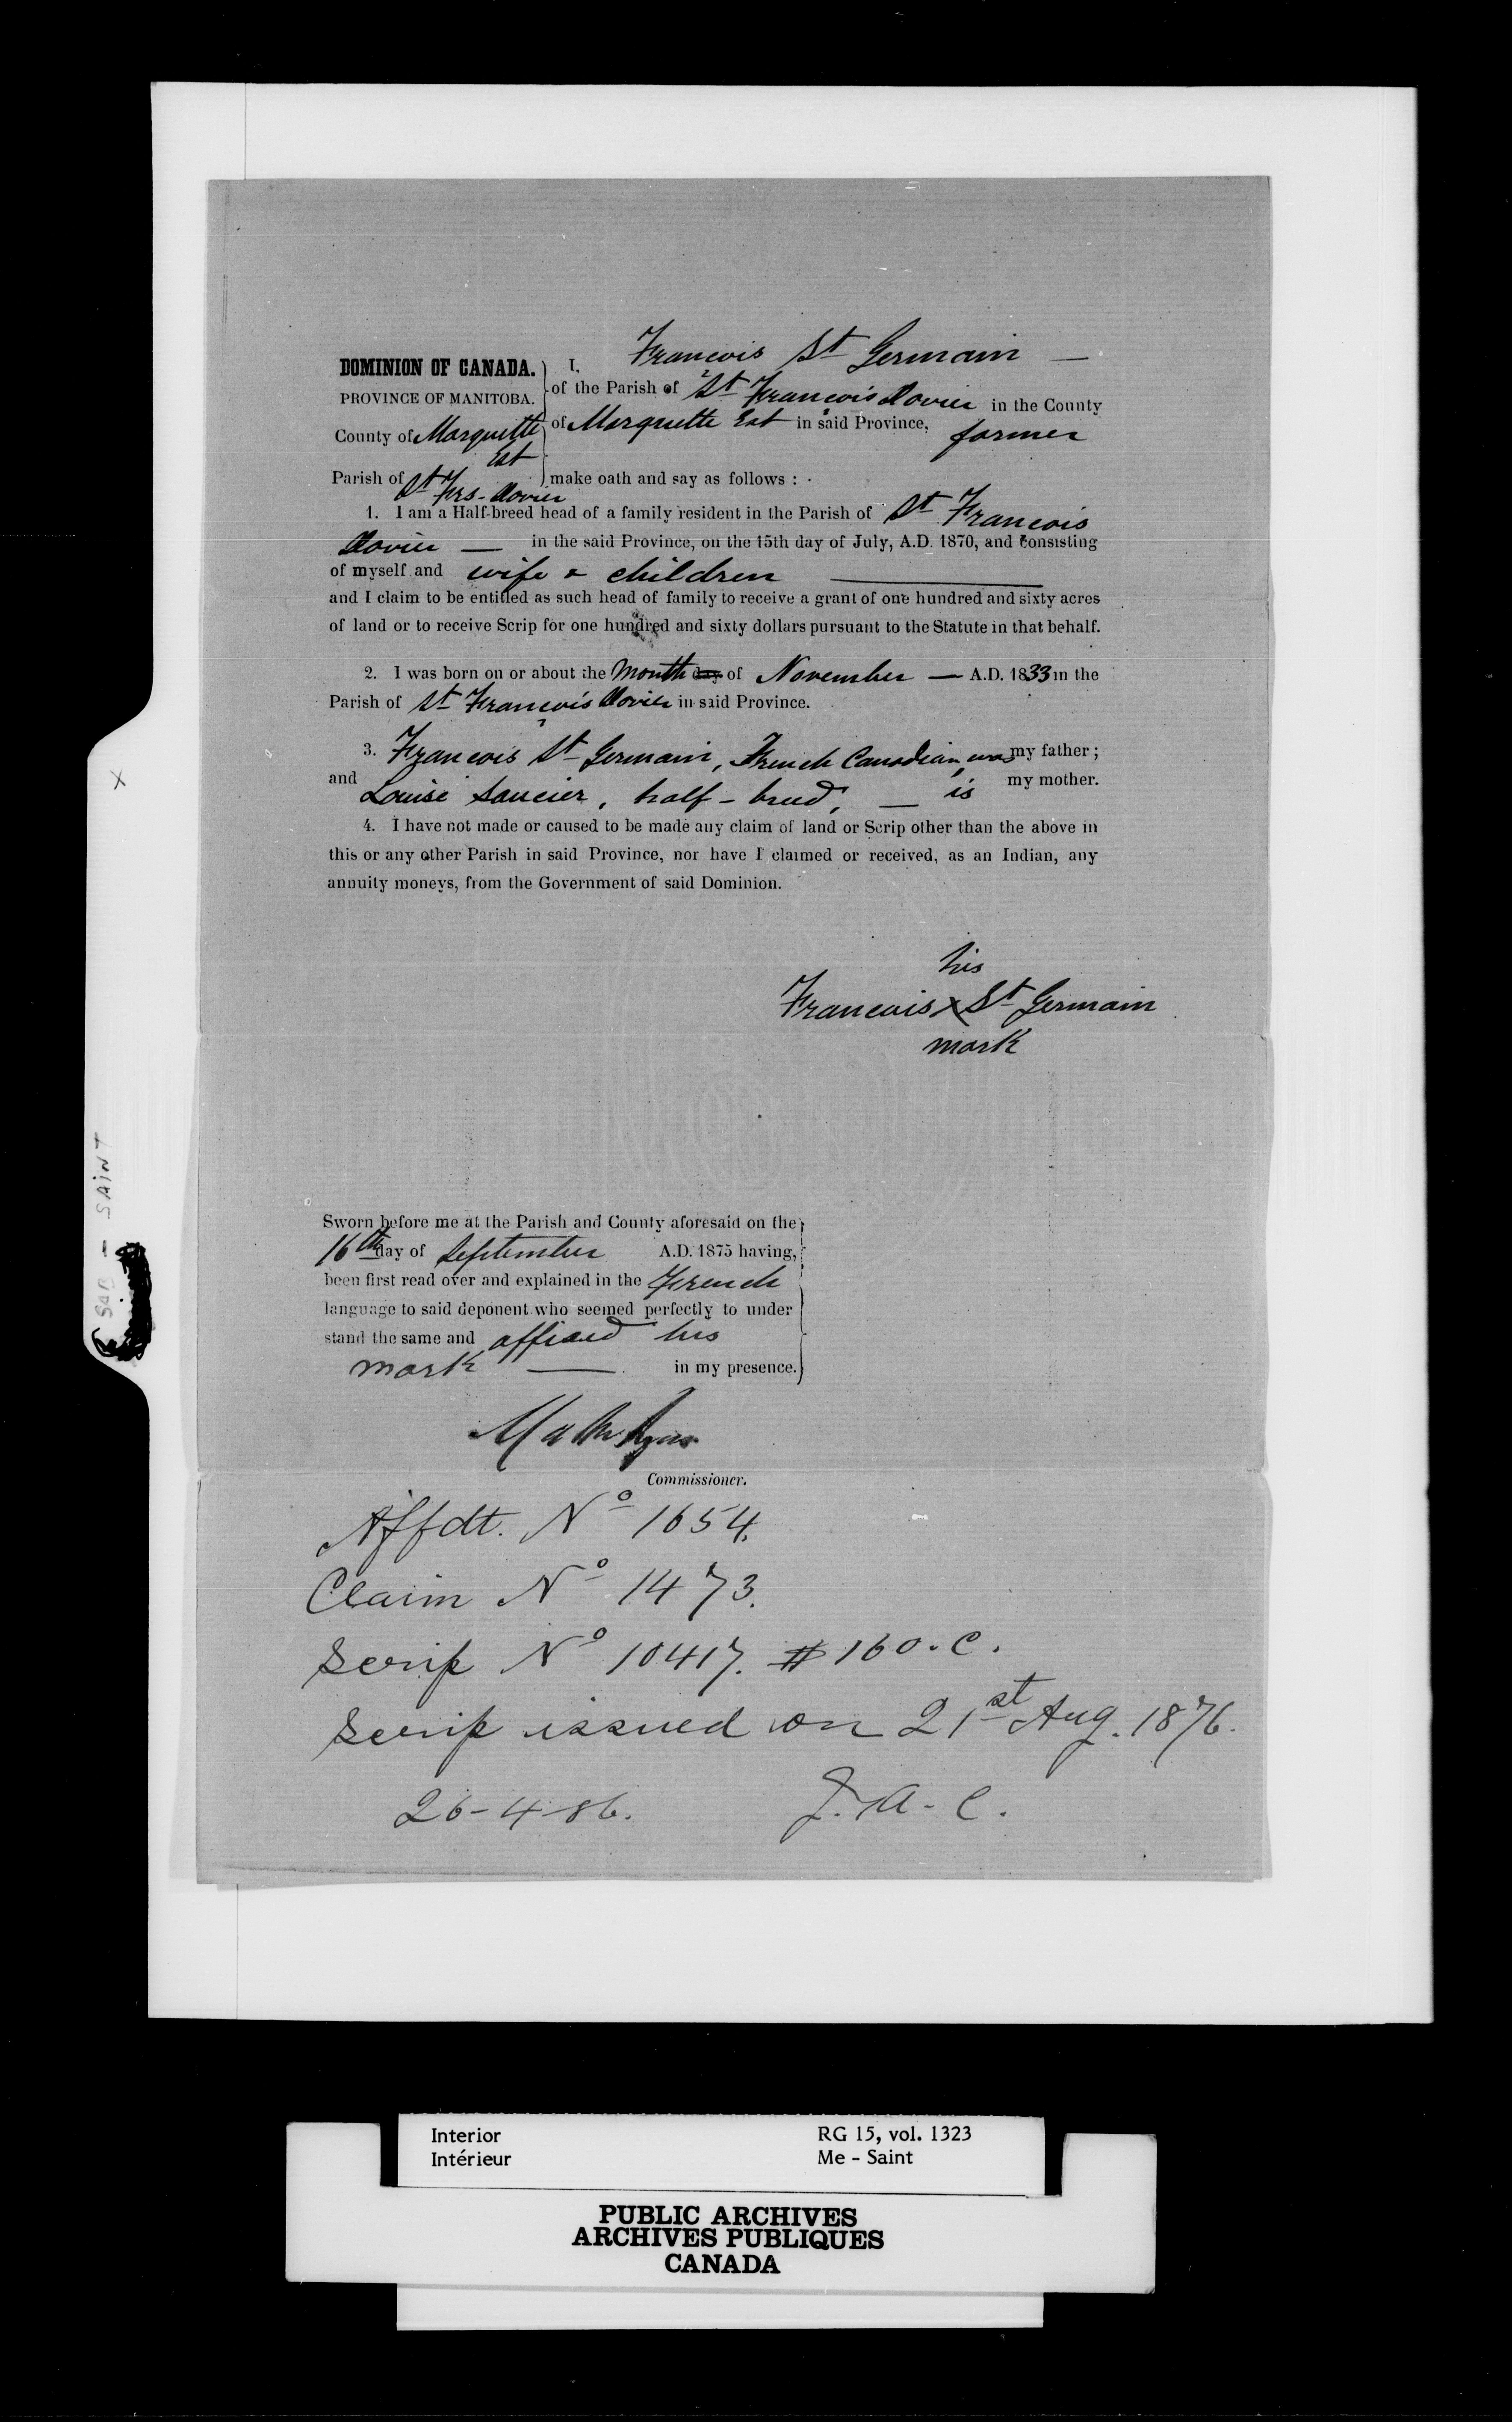 Francois St Germain —
DOMINION OF CANADA. I,
of the Parish of St François Xavier in the County
PROVINCE OF MANITOBA.
County of Marquette Est of Marquette Est in said Province, farmer
Parish of St Frs. Xavier make oath and say as follows :
1. I am a Half-breed head of a family resident in the Parish of St Francois
Xavier — in the said Province, on the 15th day of July, A.D. 1870, and consisting
of myself and wife & children
and I claim to be entitled as such head of family to receive a grant of one hundred and sixty acres
of land or to receive Scrip for one hundred and sixty dollars pursuant to the Statute in that behalf.
2. I was born on or about the month day of November — A.D. 1833 in the
Parish of St François Xavier in said Province.
3. François St Germain, French Canadian, was my father ;
and Louise Saucier, half-breed, — is my mother.
4. I have not made or caused to be made any claim of land or Scrip other than the above in
this or any other Parish in said Province, nor have I claimed or received, as an Indian, any
annuity moneys, from the Government of said Dominion.
his
Francois X St Germain
mark
Sworn before me at the Parish and County aforesaid on the
16th day of September A.D. 1875 having,
been first read over and explained in the French
language to said deponent who seemed perfectly to under
stand the same and affixed his
mark — in my presence.
Commissioner.
Affdt. No 1654.
Claim No 1473.
Scrip No 10417. $160.c.
Scrip issued on 21st Aug. 1876.
26-4-86. J.A.C.
SAB - SAINT
Interior RG 15, vol. 1323
Intérieur Me - Saint
PUBLIC ARCHIVES
ARCHIVES PUBLIQUES
CANADA